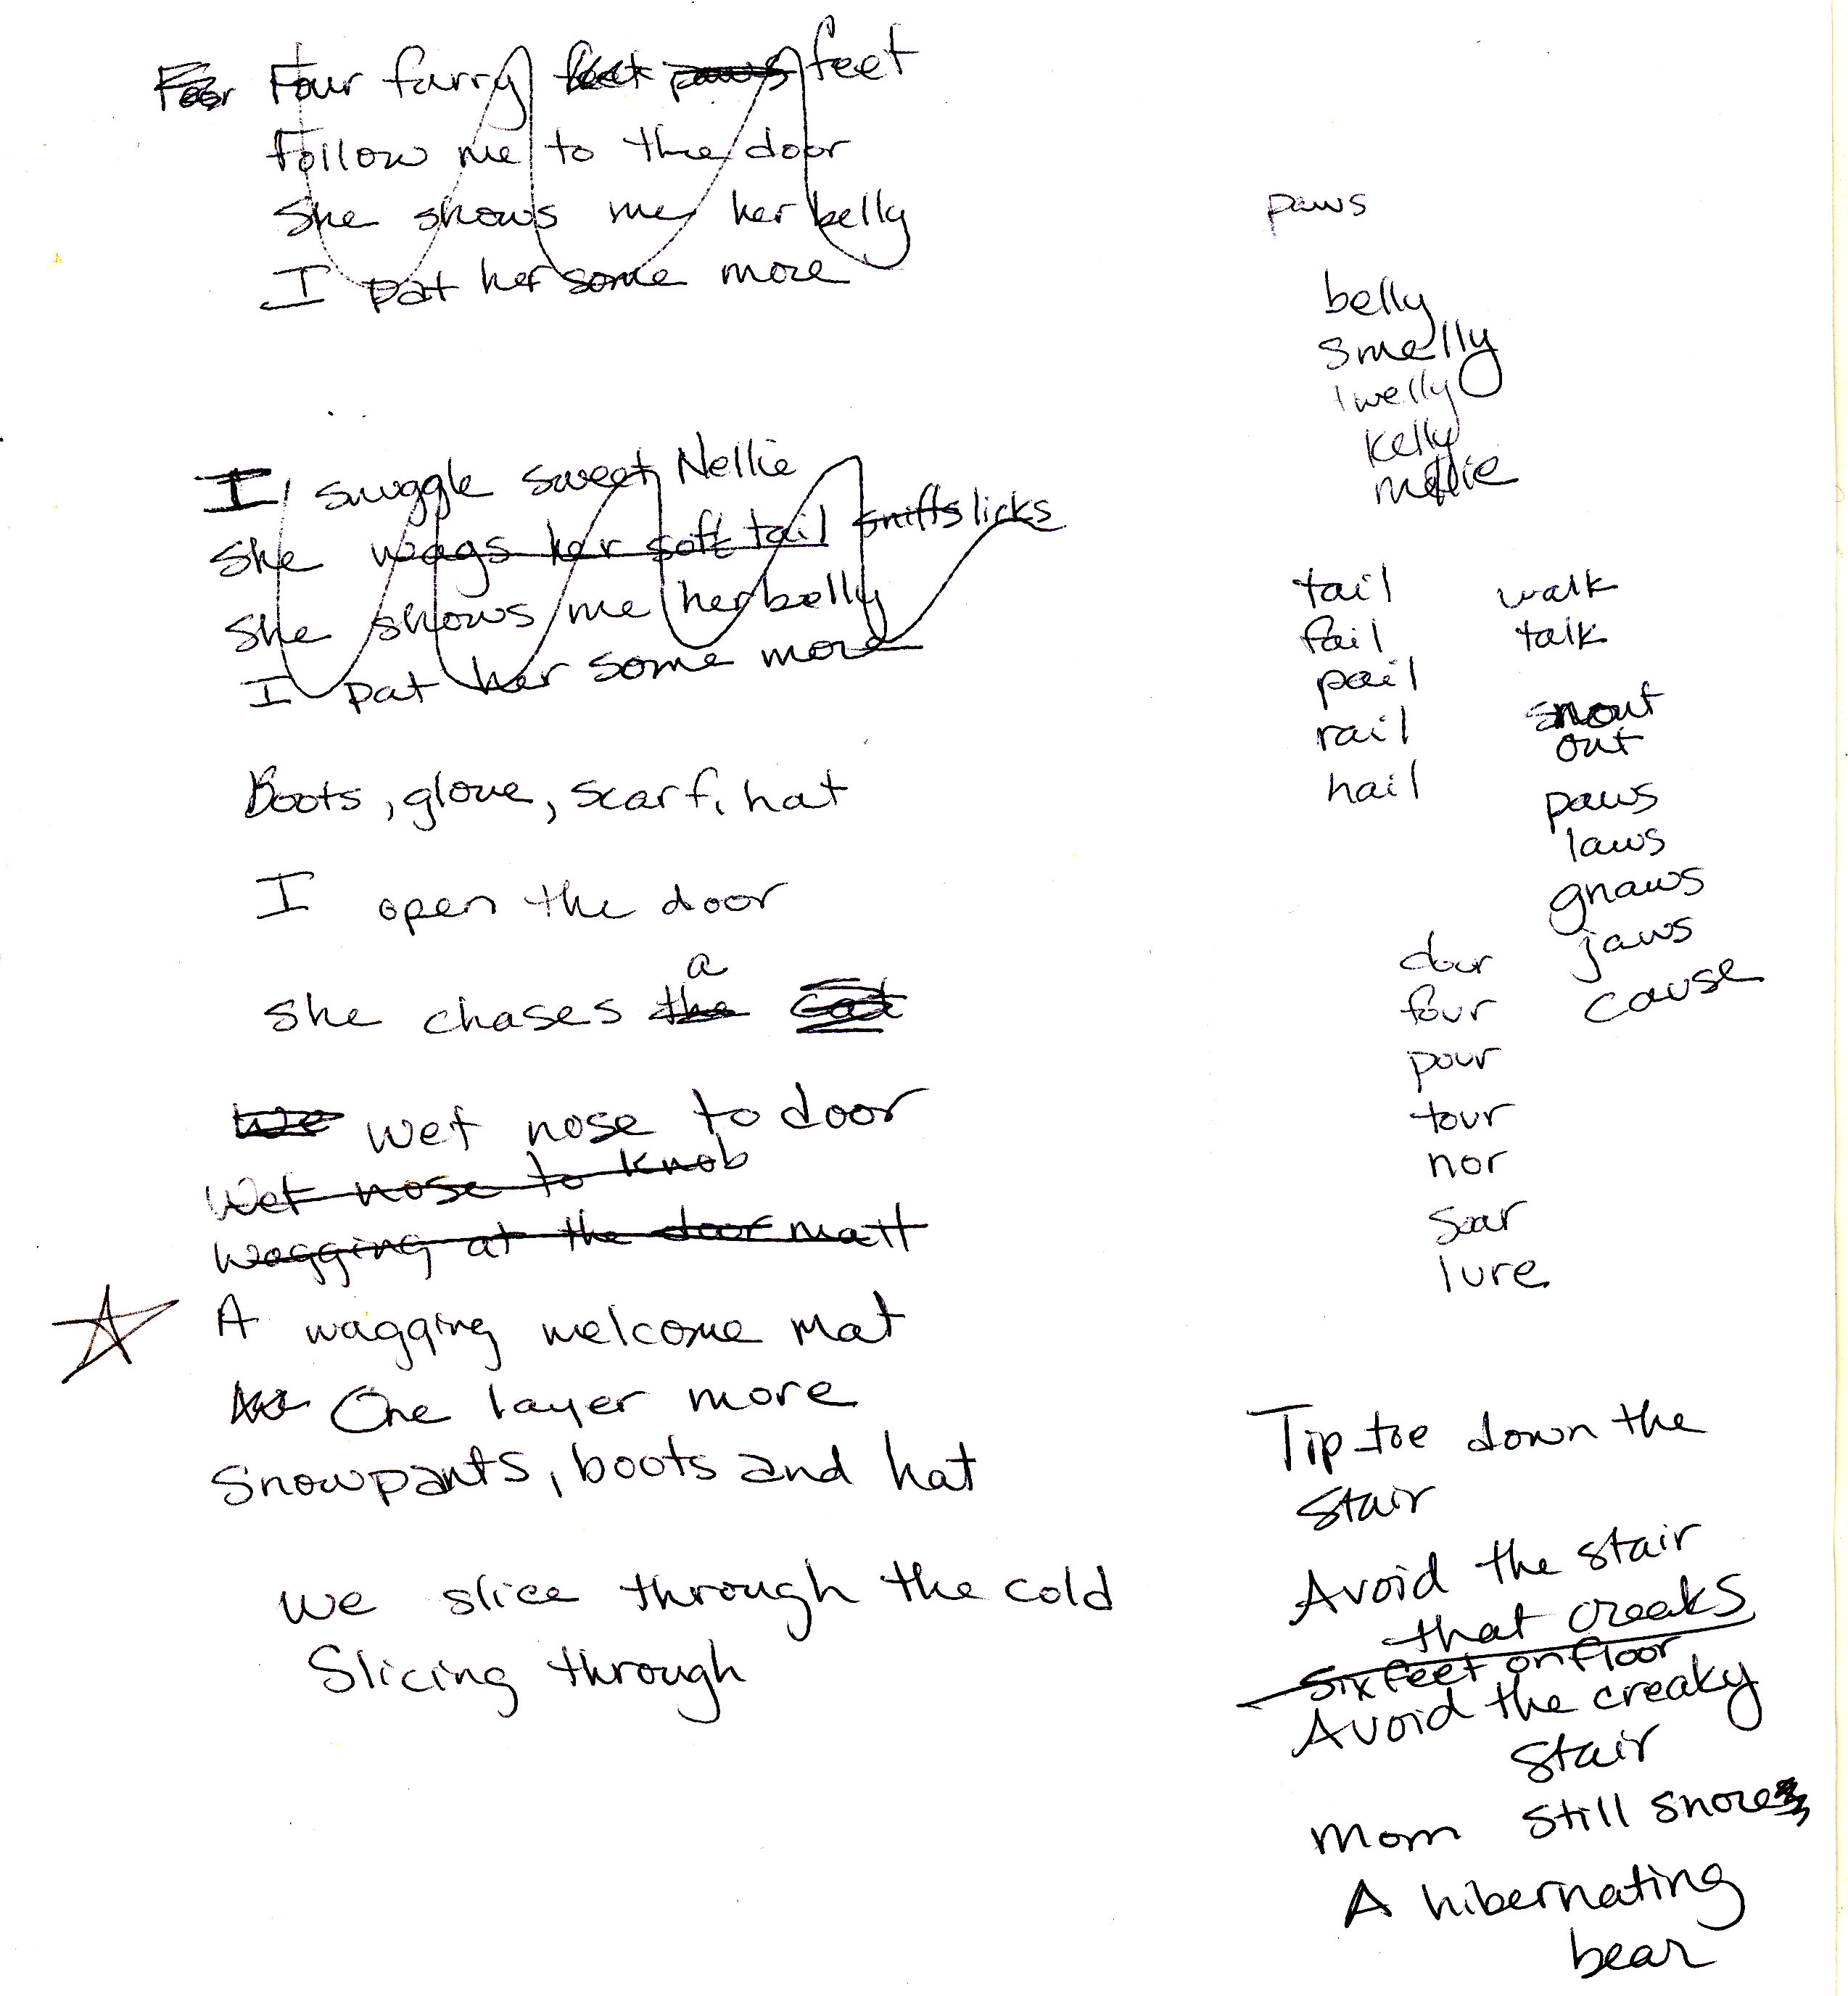 For Four furry feet paws feet
Follow me to the door
She shows me her belly
I pat her some more
I snuggle sweet Nellie
She wags her soft tail sniffs licks
She shows me her belly
I pat her some more
Boots, glove, scarf, hat
I open the door
a
she chases the cat
We wet nose to door
Wet nose to knob
Wagging at the door matt
A wagging welcome mat
One layer more
Snowpants, boots and hat
we slice through the cold
Slicing through
paws
belly
smelly
welly
Kelly
tail
fail
pail
rail
hail
walk
talk
snout
out
paws
laws
gnaws
jaws
cause
door
four
pour
tour
nor
soar
lure
Tip toe down the
stair
Avoid the stair
that creaks
six feet on floor
Avoid the creaky
stair
Mom still snores
A hibernating
bear